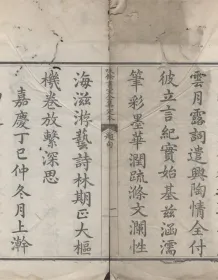 雲月露詞遣興陶情全付
彼立言紀實始基茲涵濡
筆彩墨華潤疏滌文瀾性
海滋游藝詩林期正大樞
機卷放繫深思
嘉慶丁巳仲冬月上澣